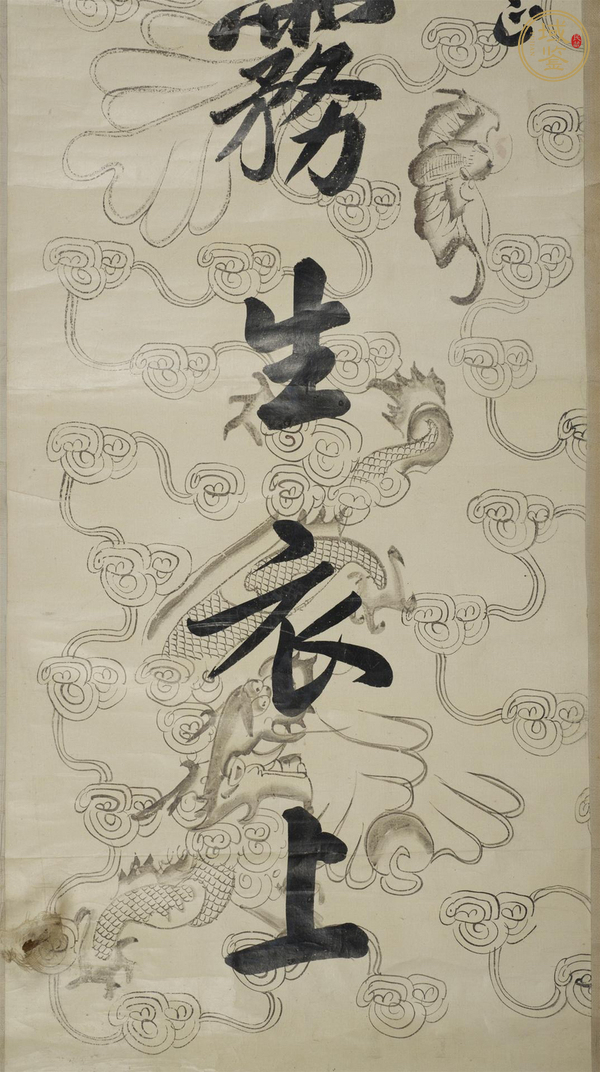 霧生衣上